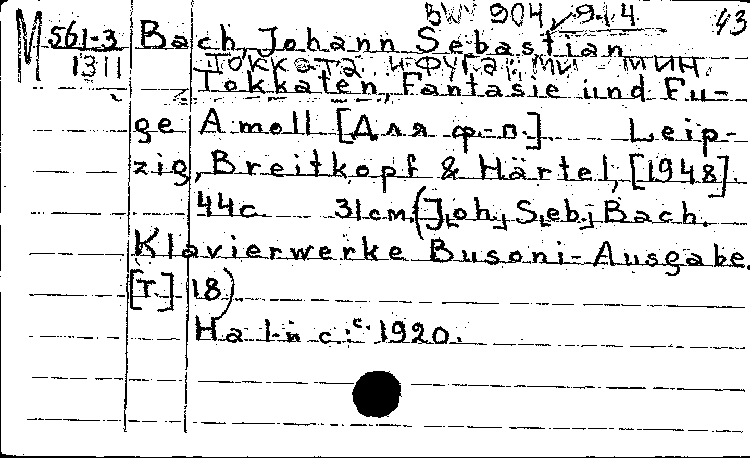 BWV 904, 914 43
М 561-3 Bach, Johann Sebastian
1311 Токката и фуга ми - мин.
Tokkaten, Fantasie und Fu-
ge A moll [Для ф-п.] Leip-
zig, Breitkopf & Härtel, [1948].
44 с. 31 см. (Joh. Seb. Bach.
Klavierwerke Busoni-Ausgabe.
[Т.] 18)
На 1-й с.: с. 1920.